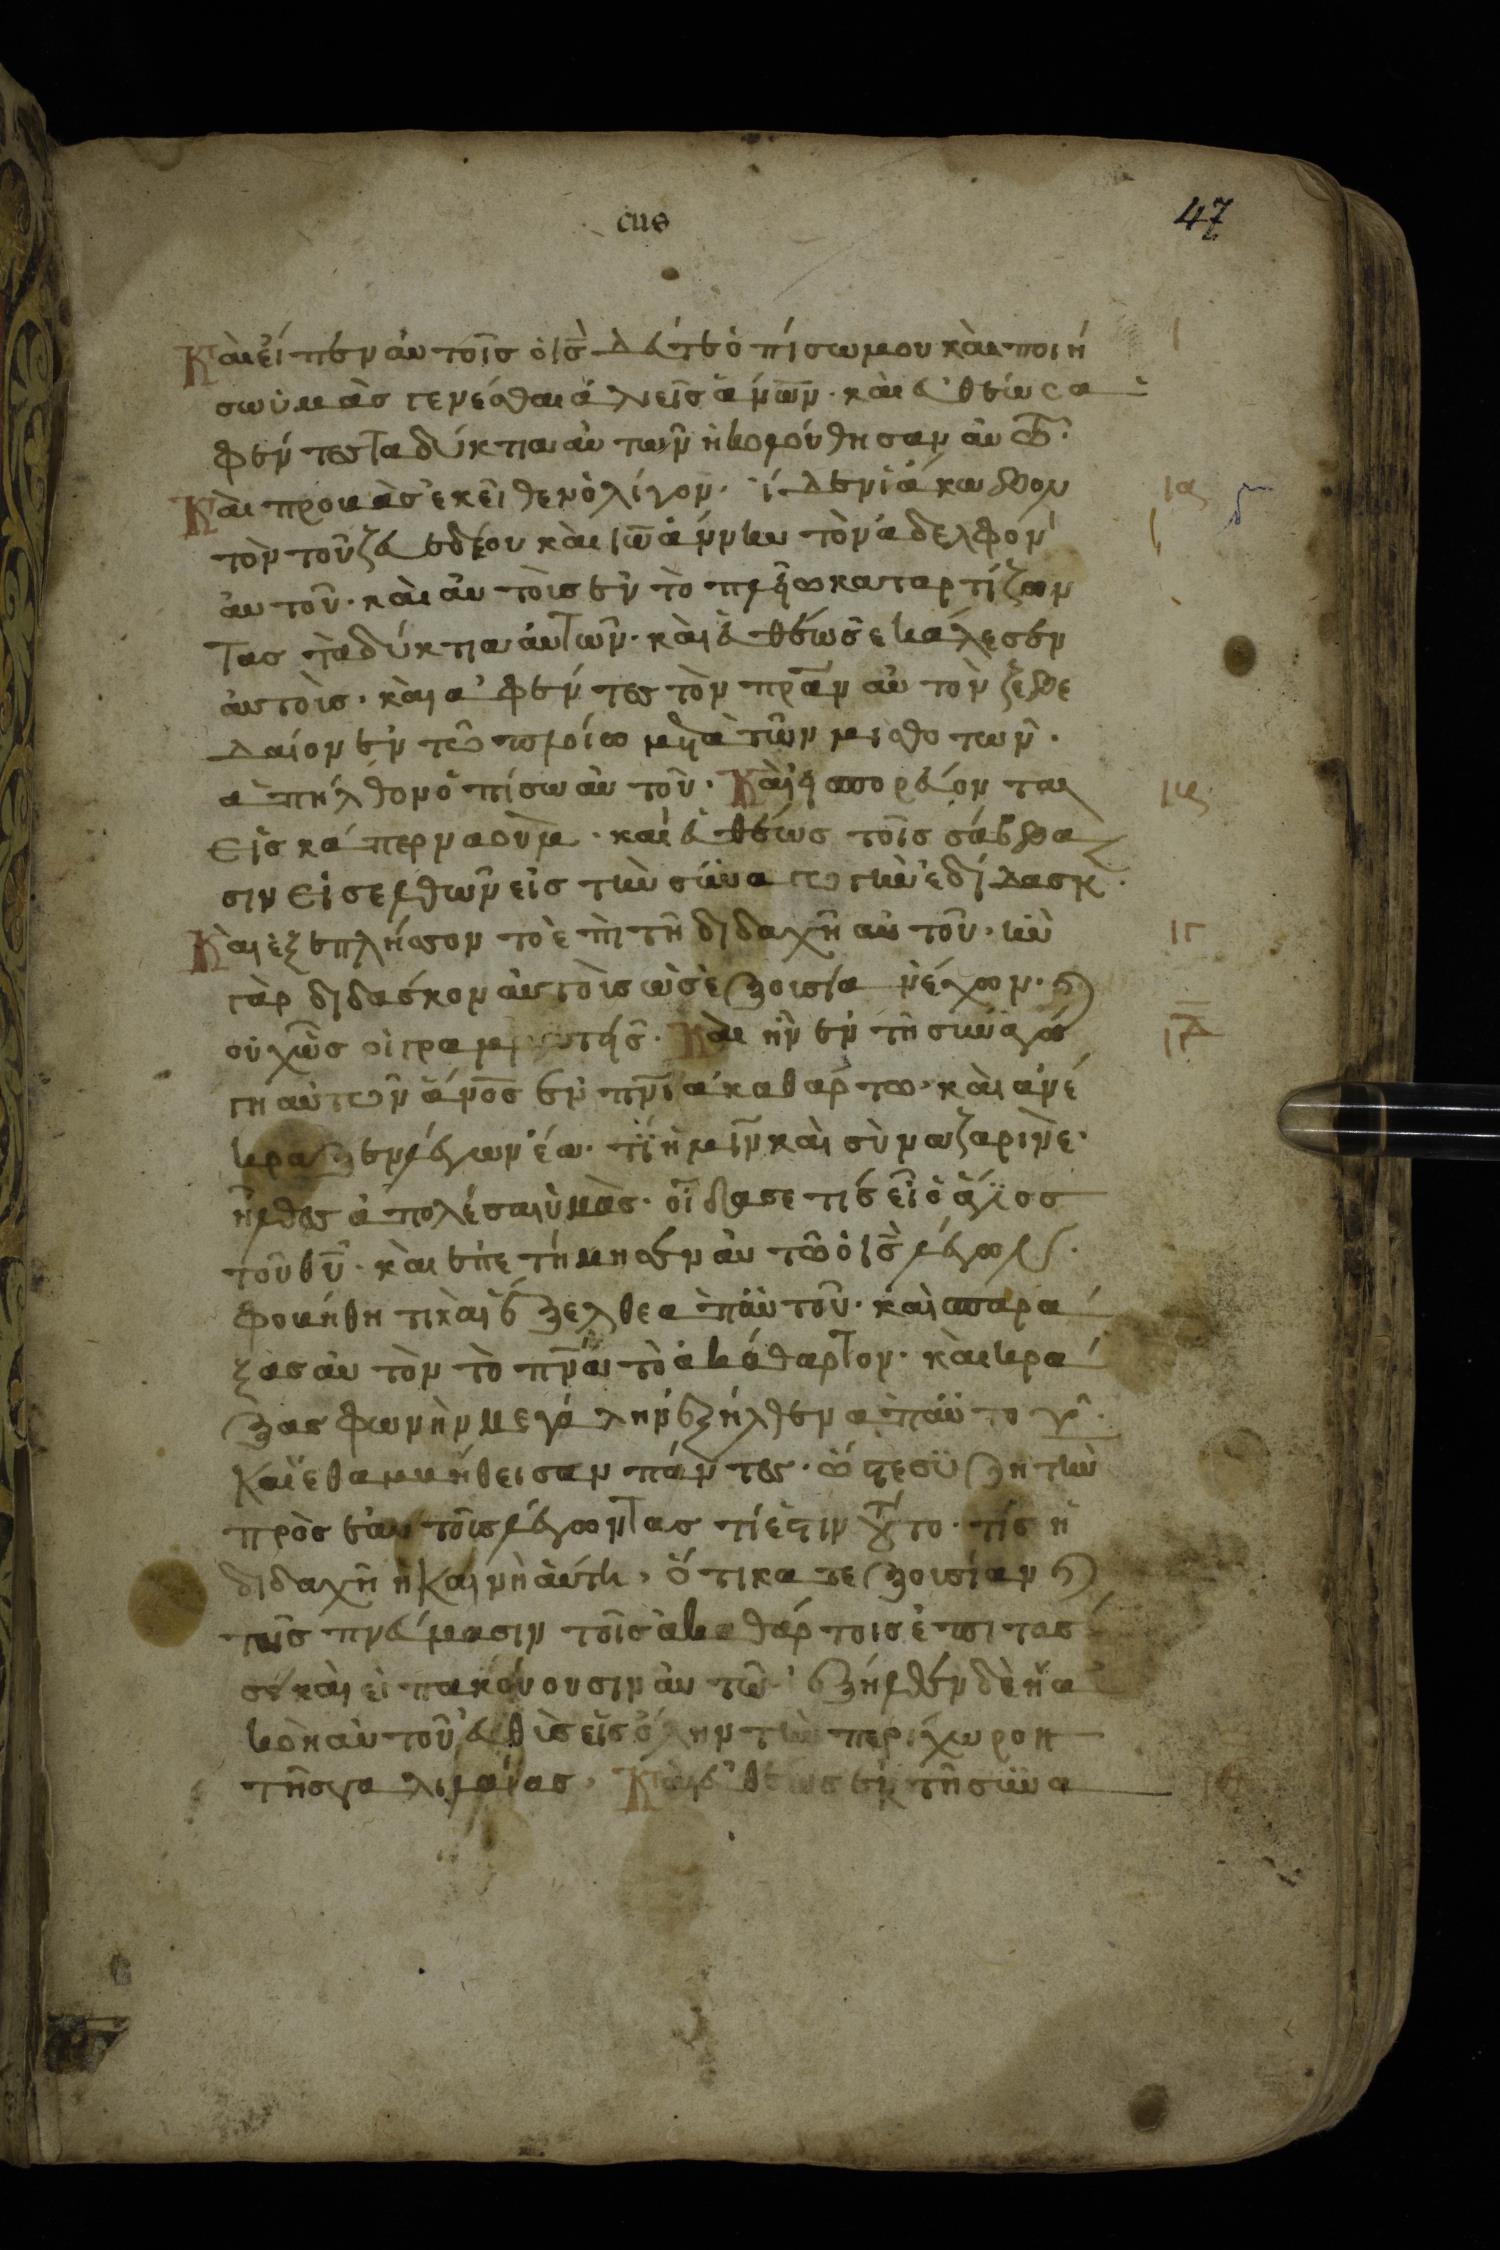 σης
47
Κὰι εἶπεν ἀυτοῖς ὁ ις̅ δεύτε ὀπίσω μου κὰι ποιή
σω ὑμὰς γενέσθαι ἁλιεῖς ἀνῶν· κὰι ἐυθέως α
φέντες τα δύκτυα ἀυτων ἠκολούθησαν ἀυτῶ·
Κὰι προβὰς ἐκεῖθεν ὀλίγον· ἴδεν ϊάκωβον
τὸν τοῦ ζεβεδέου κὰι ιω̅άννην τὸν ἀδελφὸν
ἀυτοῦ· κὰι ἀυτὸις ἐν τὸ πλοίω καταρτίζον
τας τὰ δύκτυα ἀυτῶν· κὰι ἐυθέως ἐκάλεσεν
ἀυτὸις· κὰι ἀφέντες τὸν πρα̅ν ἀυτὸν ζεβε
δαίον ἐν τῶ πλοίω μετὰ τῶν μισθοτων·
ἀπήλθον ὀπίσω ἀυτοῦ· Κὰι εἰσπορέυονται
Εἰς κάπερναούμ· κὰι ἐυθέως τοῖς σάββα
σιν εἰσελθων εἰς τὴν σϋναγωγὴν ἐδίδασκ·
Κὰι ἐξεπλήσσοντο ἐπὶ τῆ διδαχῆ ἀυτοῦ· ἦν
γὰρ διδάσκον ἀυτὸις ὡς ἐξουσίαν ἔχον· κ
οὐχ ὡς οἱ γραμματεῖς· Κὰι ἦν ἐν τῆ σϋναγω
γη αὐτων ἀνο̅ς ἐν πνι̅ ἀκαθάρτω· κὰι ἀνέ
κραξεν λέγων ἔα· τί ἡμῖν κὰι σὺ ναζαρινὲ·
ἦλθες ἀπολέσαι ὑμὰς· οἶδασε τίς εἶ ὁ ἅγϊος
τοῦ θυ̅· κὰι ἐπετήμησεν ἀυτῶ ὁ ις̅ λέγον·
φοιμήθητι κὰι ἔξελθε ἀπ ἀυτοῦ· κὰι σπαρά
ξας ἀυτὸν τὸ πνα̅ τὸ ἀκάθαρτον· κὰι κρά
ξας φωνὴν μεγάλην ἐξήλθεν ἀπ αὐτου·
Κὰι ἐθαμυήθεισαν πάντες· ὥστε σϋζητὴν
πρὸς ἐαυτοῖς λέγοντας τί ἐστιν τοῦτο· τίς ἡ
διδαχῆ ἡ καινὴ ἁύτη· ὅτι κατ ἐξουσίαν κ
τοῖς πνέυμασιν τοῖς ἀκαθάρτοις ἐπιτάσ
σε κὰι εἰπακόυουσιν ἀυτῶ· ἐξήλθεν δὲ ἡ ἀ
κοὴ ἀυτοῦ ἐυθὶς εἰς ὅλην τὴν περίχωρον
τῆς γαλιλαίας· Κὰι ἐυθέως ἐκ τῆς σϋνα
ια
δ
ιβ
ιγ
ιδ